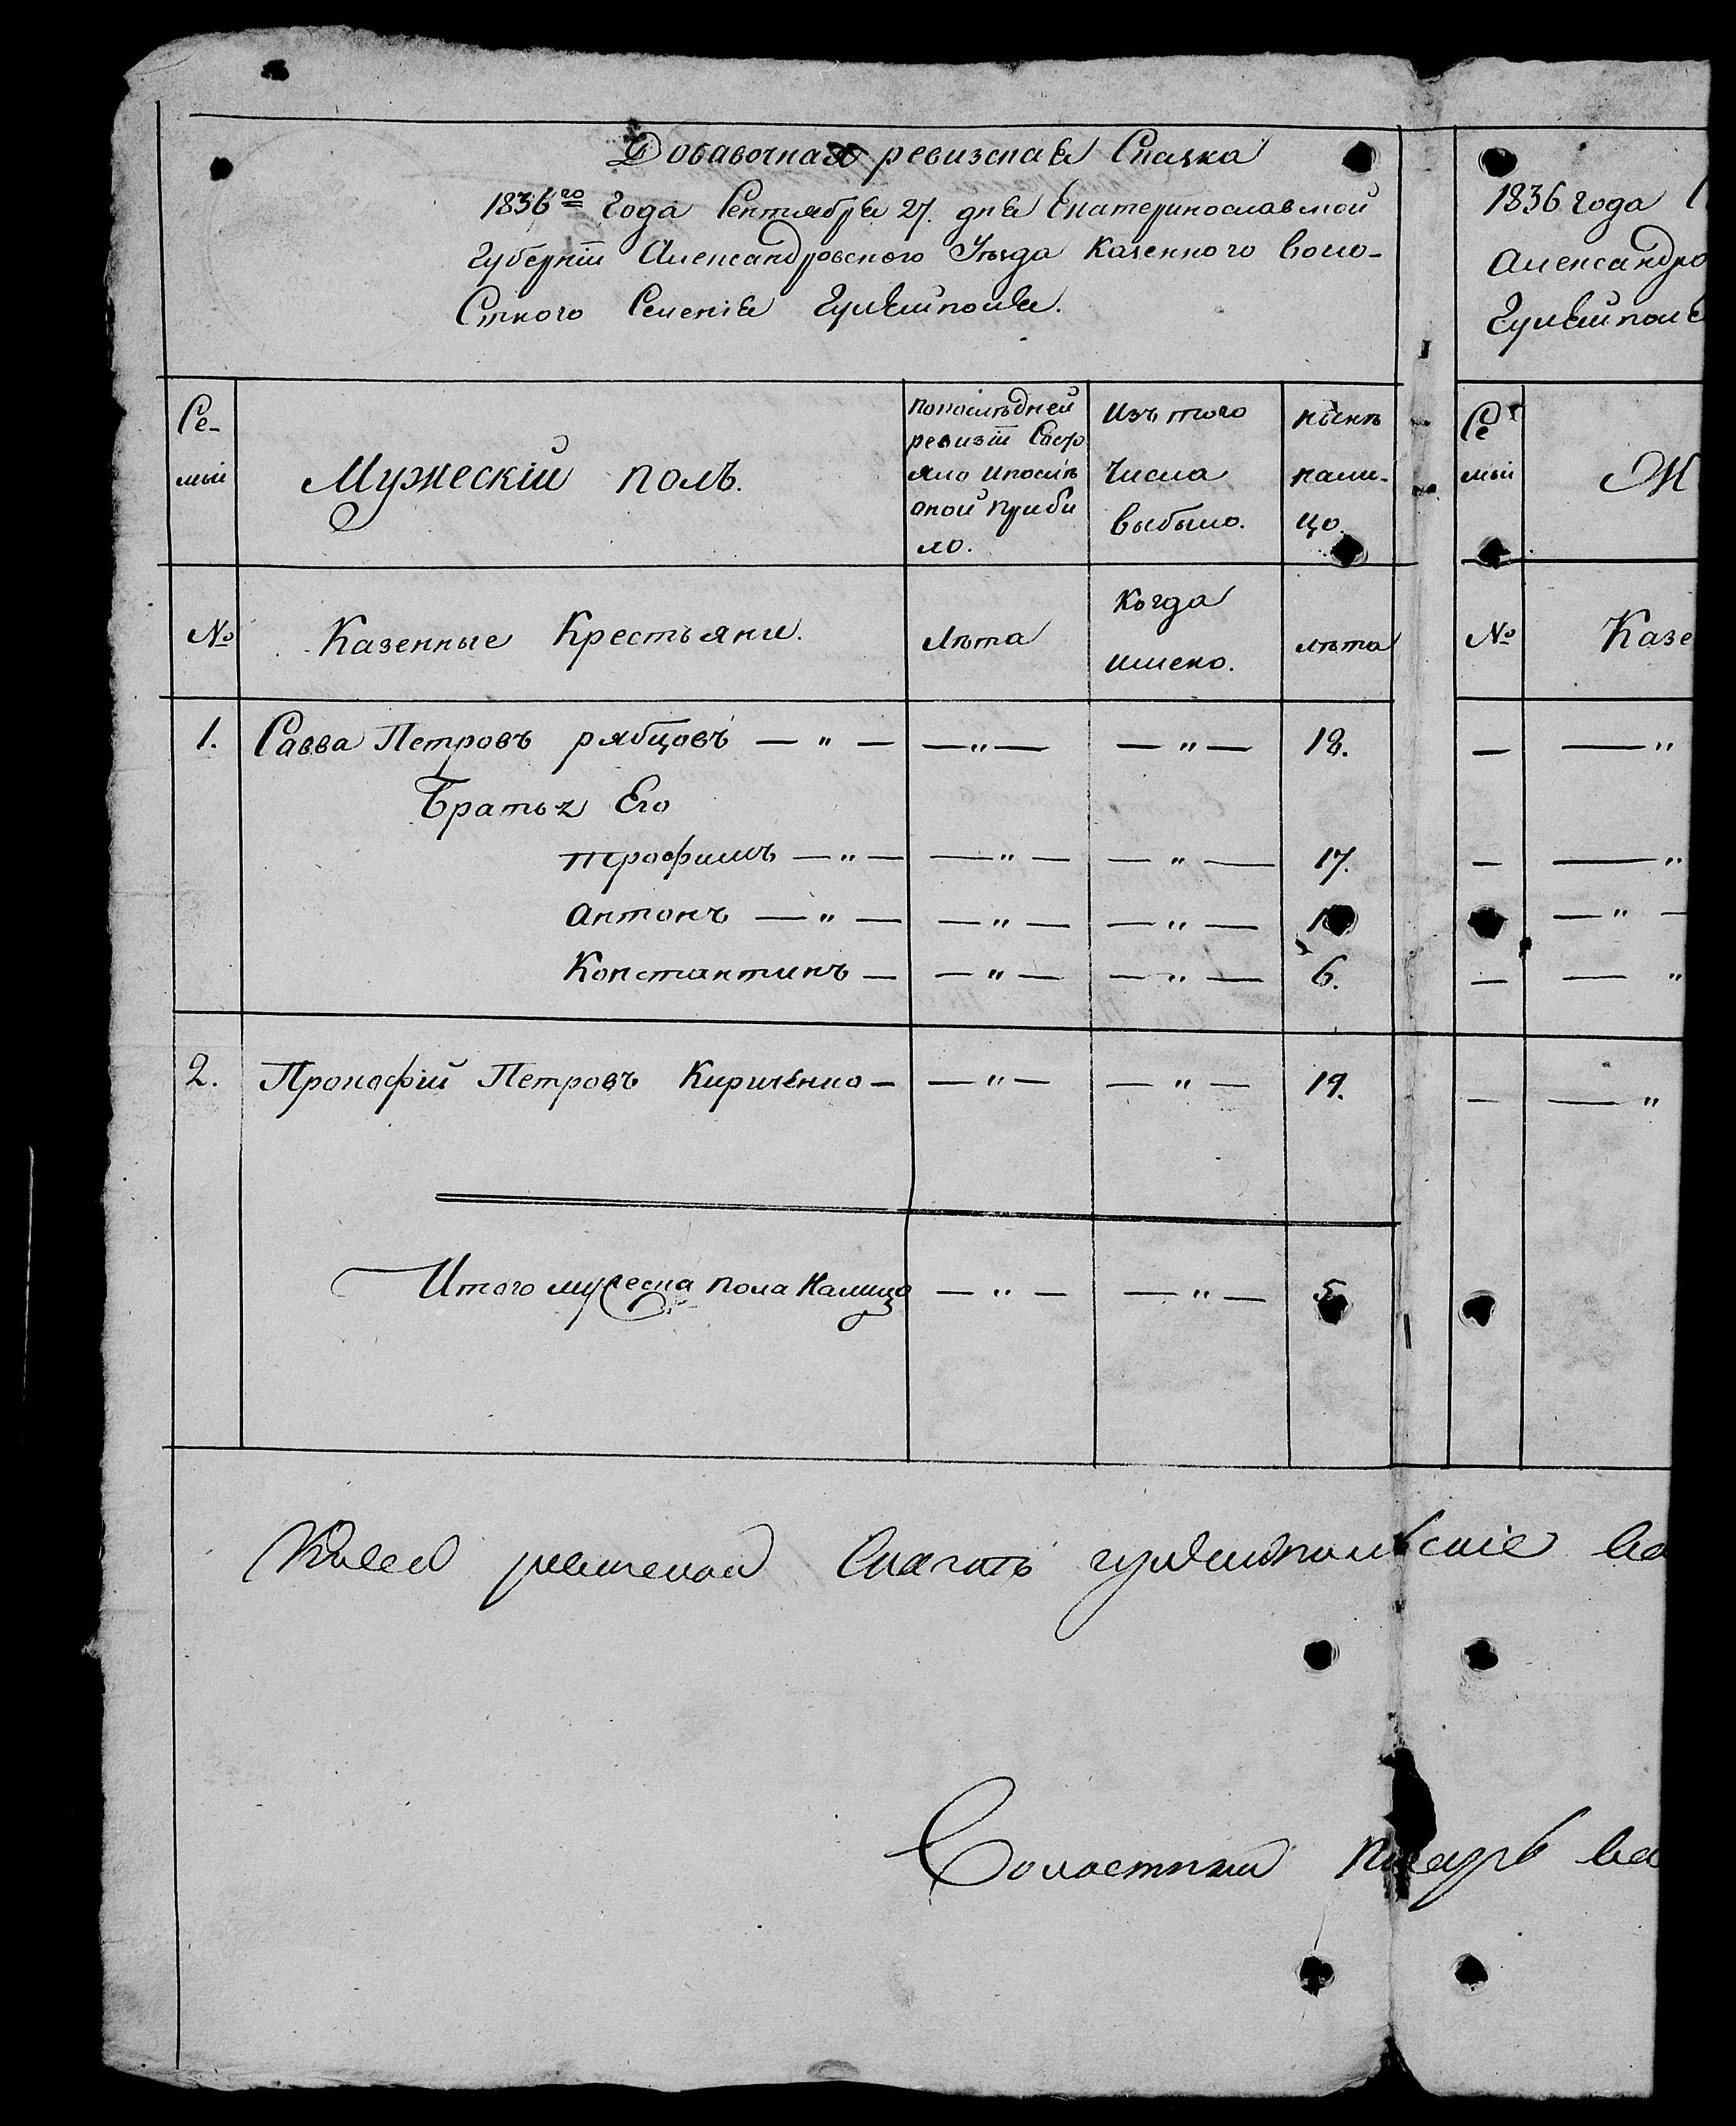 Добавочная ревизская Сказка
1836го года Сентября 27. дня Екатеринославской
Губернiи Александровского Уезда Казенного воло-
Стного Селенiя Гуляйполя.
Се-
мьи
Мужескiй полъ.
попослѣдней
ревизiи Состо
яло ипослѣ
оной прибы
ло.
Изъ того
Числа
выбыло.
нынѣ
нали-
цо.
№
Казенные Крестьяни.
Лѣта
Когда
имено.
лѣта
1. Савва Петровъ рябцовъ — " — — " — — " — 18.
Братья Его
трофимъ — " — — " — — " — 17.
антонъ — " — — " — — " —
Константинъ — — " — — " — 6.
2. Прокофiй Петровъ Кириченко — — " — — " — 19.
Итого мужеска пола Налицо — " — — " — 5.
1836 года
Александро
Гуляйпол
Се
мьи
М
№
Казе
— — "
— — "
— " —
— — "
— — "
Ксей ревизской Сказки гуляйпольскiе во
Волостной писарь